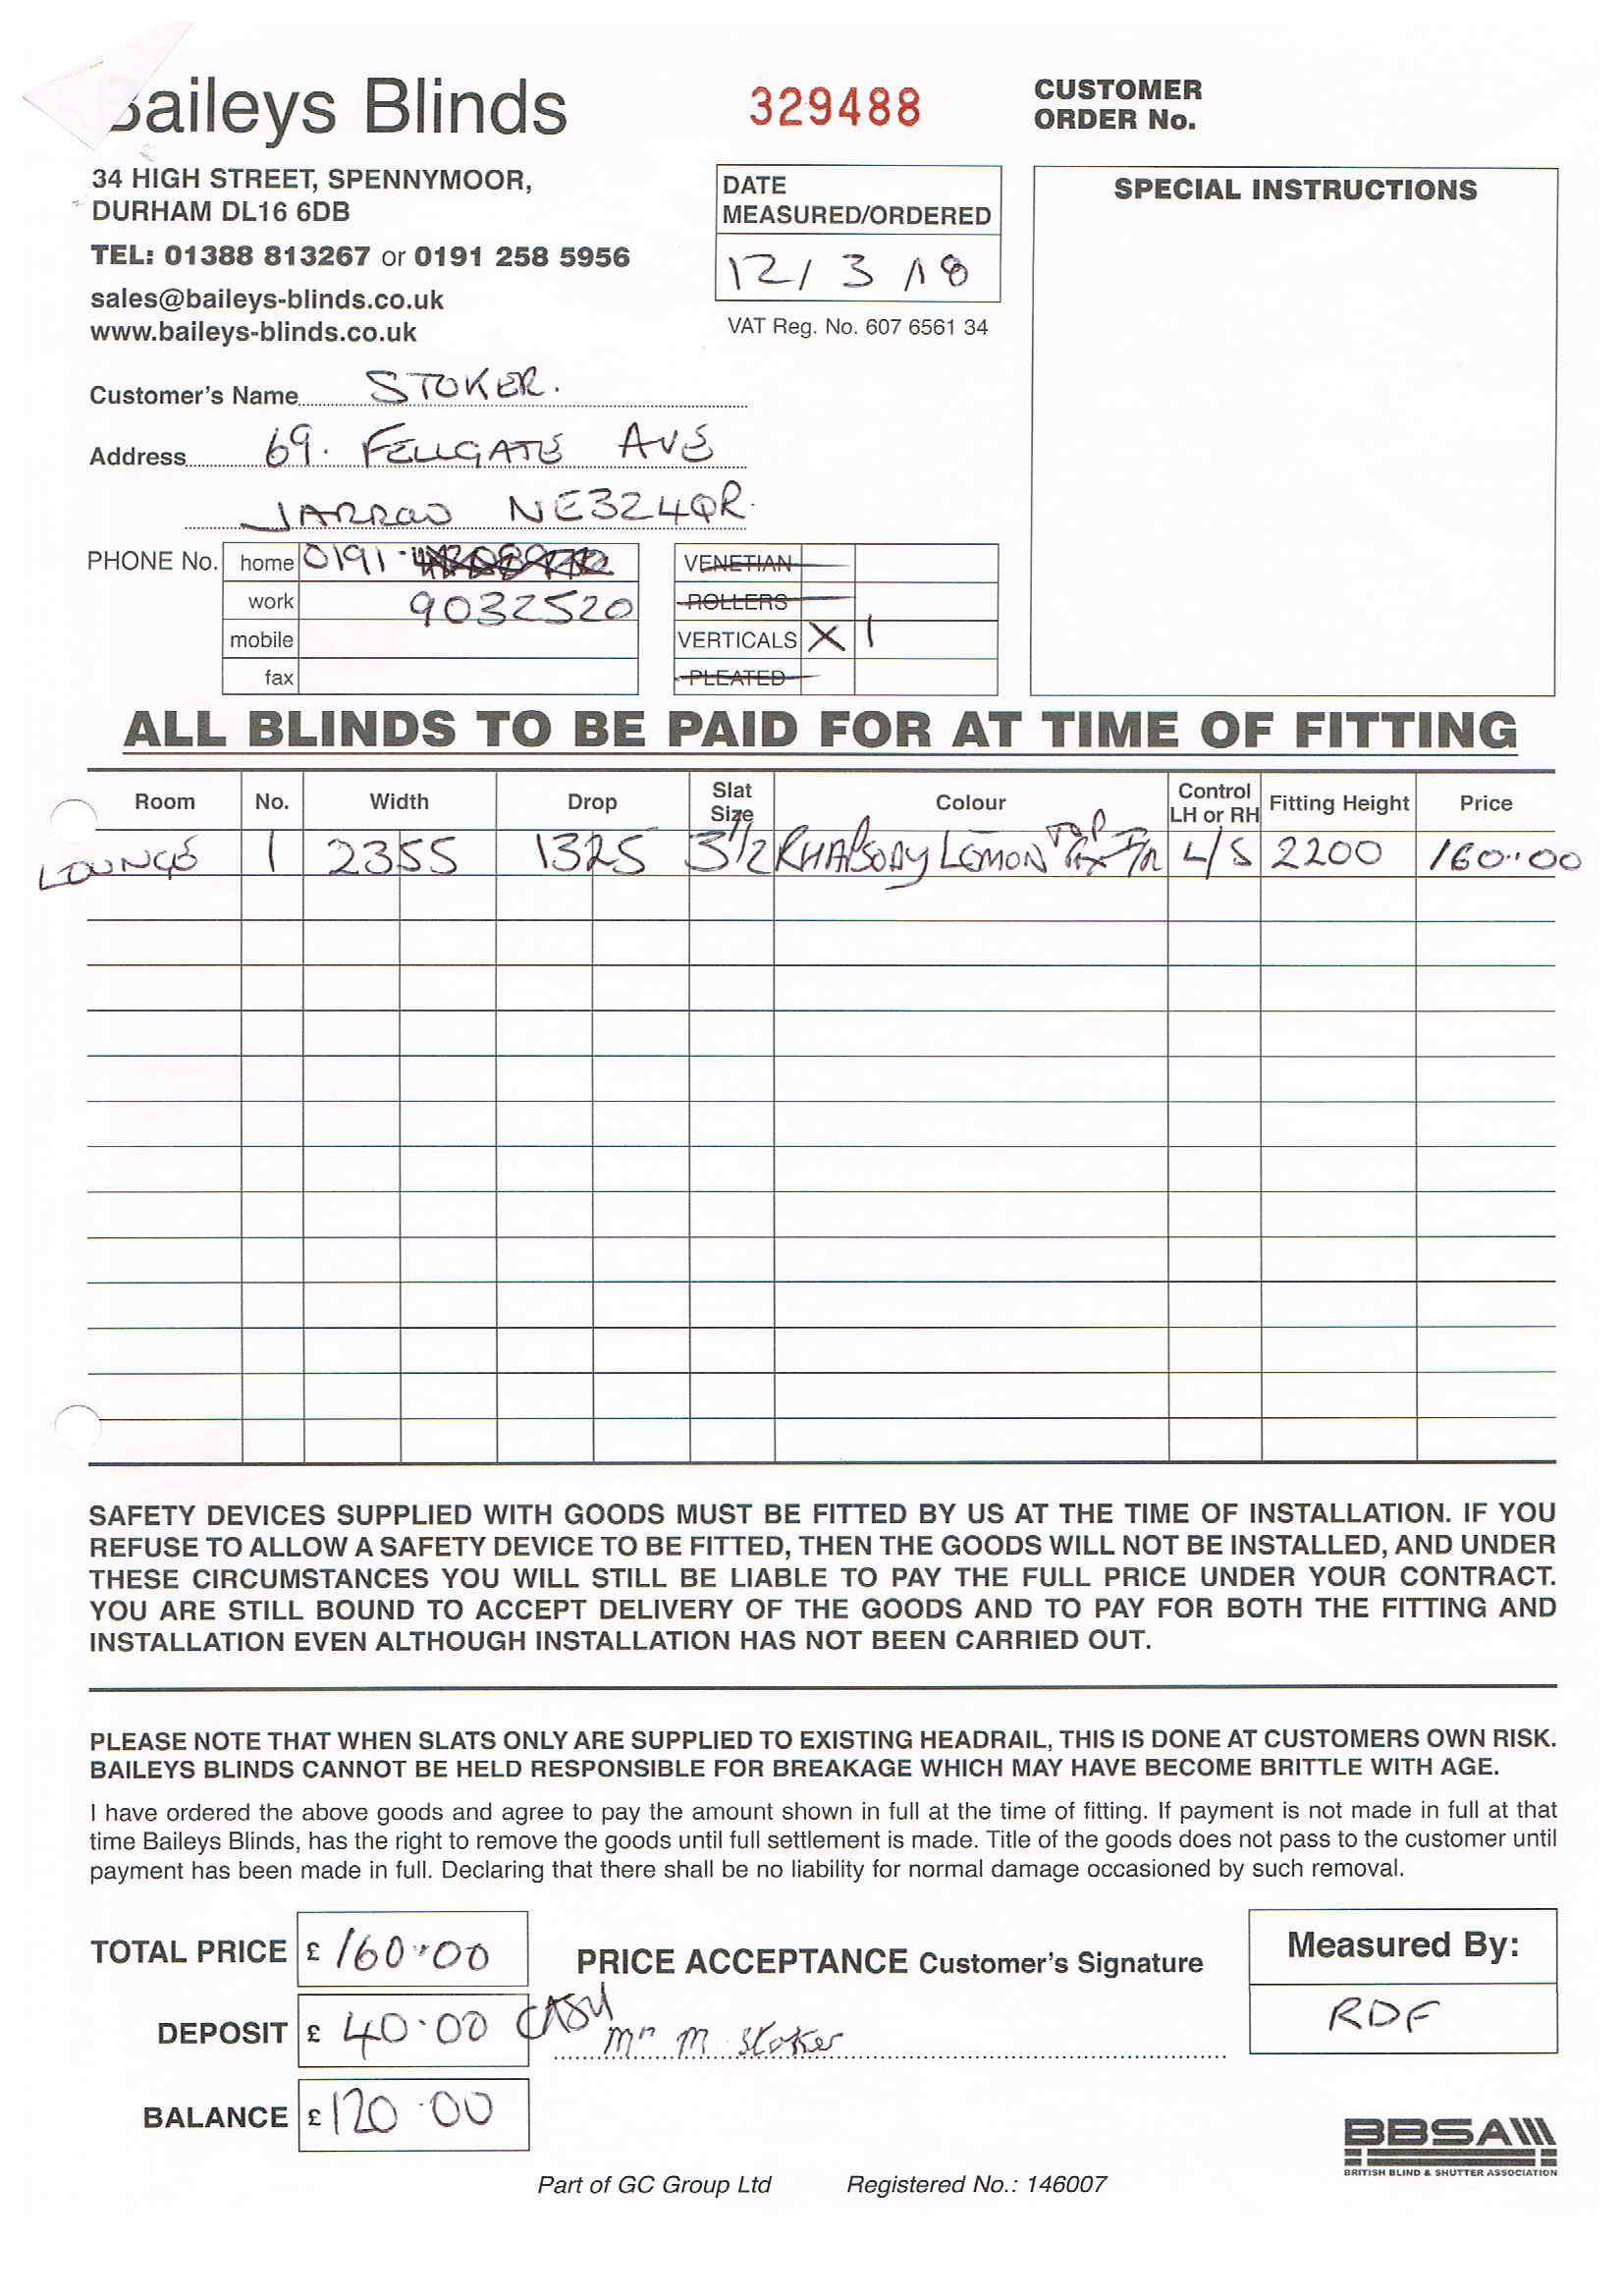 Baileys Blinds
329488
CUSTOMER
ORDER No.
34 HIGH STREET, SPENNYMOOR,
DURHAM DL16 6DB
TEL: 01388 813267 or 0191 258 5956
sales@baileys-blinds.co.uk
www.baileys-blinds.co.uk
DATE
MEASURED/ORDERED
12/3/18
VAT Reg. No. 607 6561 34
SPECIAL INSTRUCTIONS
Customer's Name STOKER.
Address 69. FELLGATE AVE
JARROW NE32 4QR.
PHONE No. home 0191
work 9032520
mobile
fax
VENETIAN
ROLLERS
VERTICALS X 1
PLEATED
ALL BLINDS TO BE PAID FOR AT TIME OF FITTING
Room No. Width Drop Slat Size Colour Control LH or RH Fitting Height Price
LOUNGE 1 2355 1325 3 1/2 RHAPSODY LEMON TOP L/S 2200 160.00
SAFETY DEVICES SUPPLIED WITH GOODS MUST BE FITTED BY US AT THE TIME OF INSTALLATION. IF YOU
REFUSE TO ALLOW A SAFETY DEVICE TO BE FITTED, THEN THE GOODS WILL NOT BE INSTALLED, AND UNDER
THESE CIRCUMSTANCES YOU WILL STILL BE LIABLE TO PAY THE FULL PRICE UNDER YOUR CONTRACT.
YOU ARE STILL BOUND TO ACCEPT DELIVERY OF THE GOODS AND TO PAY FOR BOTH THE FITTING AND
INSTALLATION EVEN ALTHOUGH INSTALLATION HAS NOT BEEN CARRIED OUT.
PLEASE NOTE THAT WHEN SLATS ONLY ARE SUPPLIED TO EXISTING HEADRAIL, THIS IS DONE AT CUSTOMERS OWN RISK.
BAILEYS BLINDS CANNOT BE HELD RESPONSIBLE FOR BREAKAGE WHICH MAY HAVE BECOME BRITTLE WITH AGE.
I have ordered the above goods and agree to pay the amount shown in full at the time of fitting. If payment is not made in full at that
time Baileys Blinds, has the right to remove the goods until full settlement is made. Title of the goods does not pass to the customer until
payment has been made in full. Declaring that there shall be no liability for normal damage occasioned by such removal.
TOTAL PRICE £ 160.00
PRICE ACCEPTANCE Customer's Signature
Measured By:
RDF
DEPOSIT £ 40.00 CASH
Mr M Stoker
BALANCE £ 120.00
BBSA
BRITISH BLIND & SHUTTER ASSOCIATION
Part of GC Group Ltd Registered No.: 146007